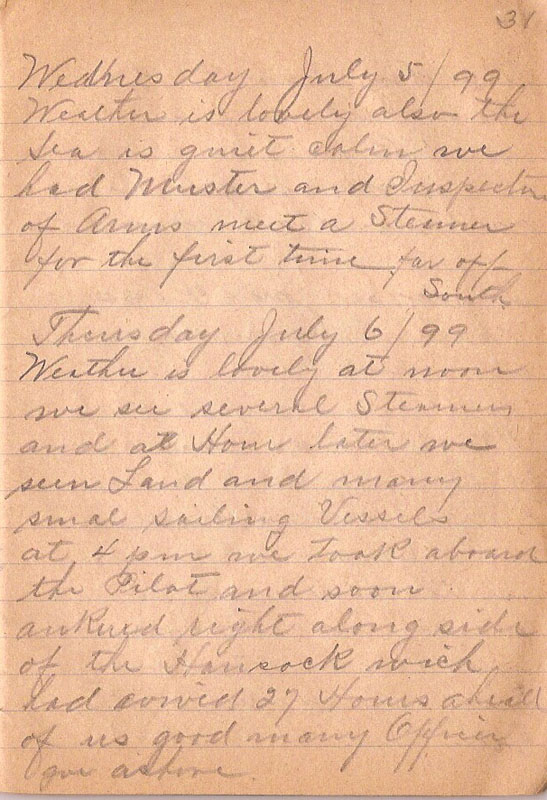 31
Wednesday July 5/99
Weather is lovely also the
Sea is quiet calm we
had Muster and Inspection
of Arms meet a Steamer
for the first time far off
South
Thursday July 6/99
Weather is lovely at noon
we see several Steamers
and at Hour later we
seen Land and many
smal sailing Vessels
at 4 pm we took aboard
the Pilot and soon
ankred right along side
of the Hancock wich
had arived 27 Hours ahead
of us good many Officers
goe ashore.